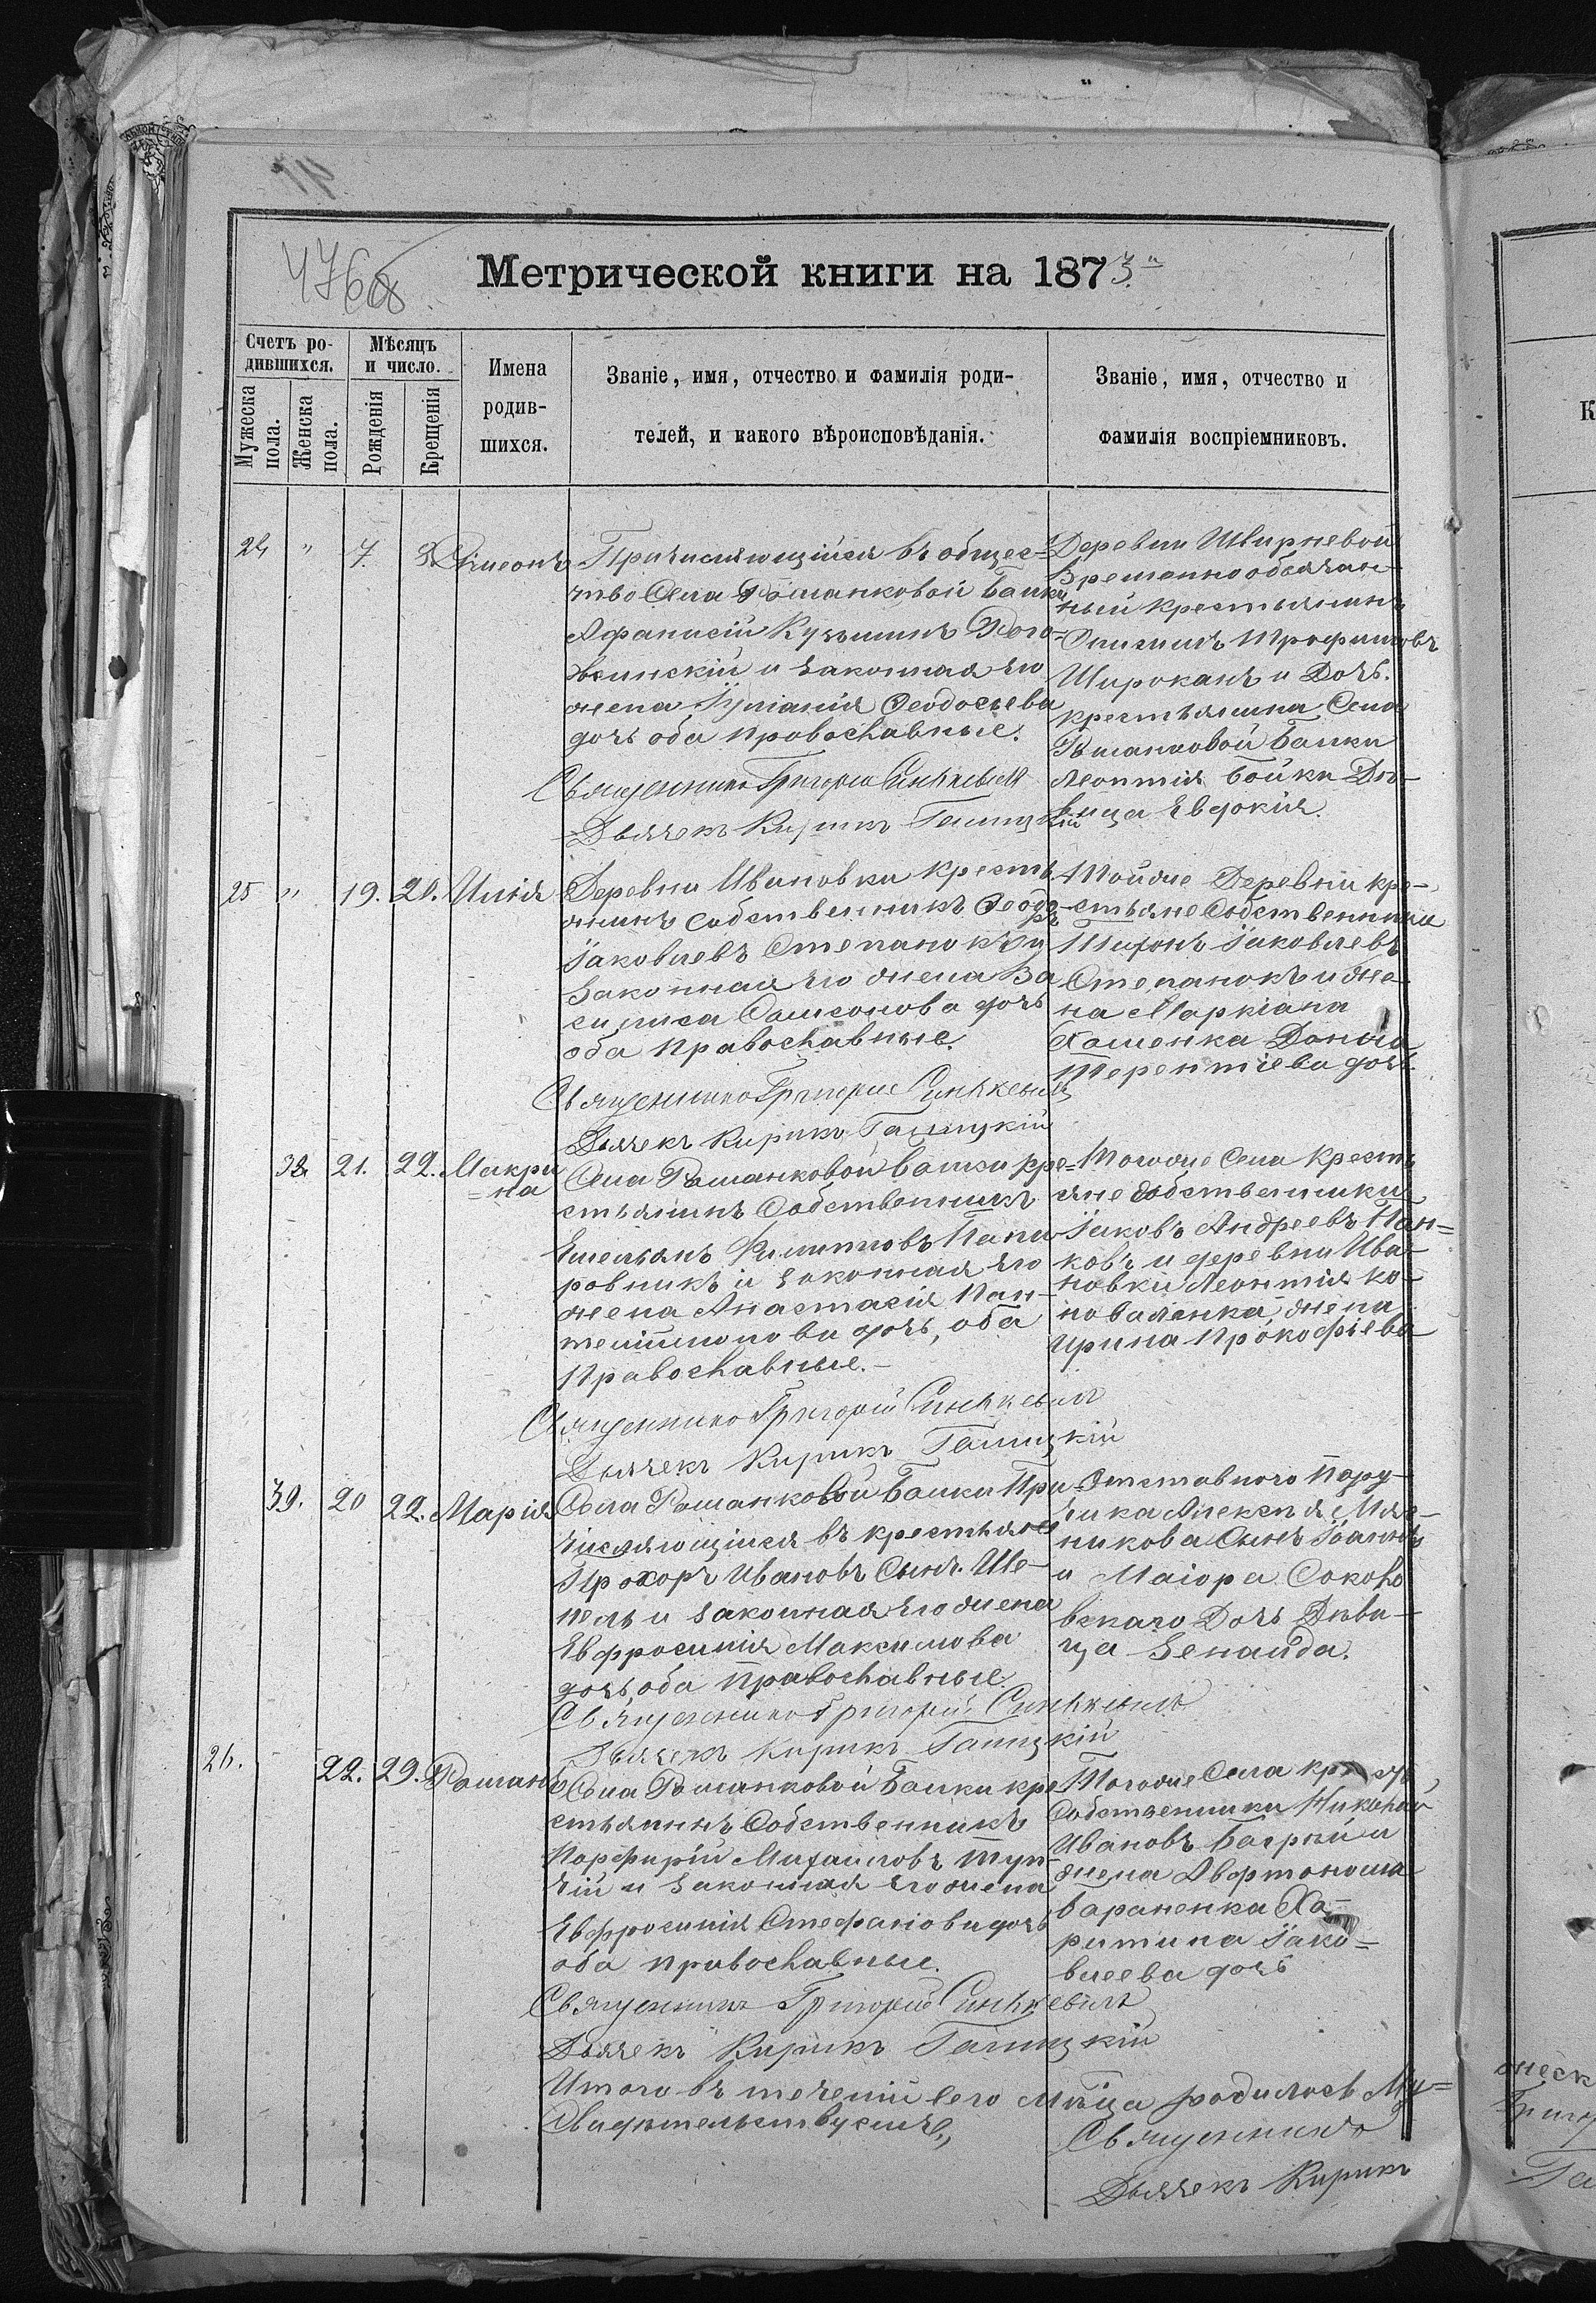 476
Метрической книги на 1873
Счетъ ро-
дившихся.
Мужеска пола.
Женска пола.
Мѣсяцъ
и число.
Рожденія
Крещенія
Имена
родив-
шихся.
Званіе, имя, отчество и фамилія роди-
телей, и какого вѣроисповѣданія.
Званіе, имя, отчество и
фамилія воспріемниковъ.
24 " 7.
Причисляющійся въ общес-
тво Села Романковой Балки
Афанасій Кузьминъ
и законная его
жена Іуліанія Ѳеодосьева
дочь оба православные.
Священникъ Григорій Синькевичъ
Дьячекъ Кирикъ Галицкій
Деревни
Временнообязан-
ный крестьянинъ
Трофимовъ
Широканъ и Дочь
крестьянина Села
Романковой Балки
Леонтія Бойка Дѣ-
вица Евдокія.
25 " 19. 21. Илія
Деревни Ивановки кресть
янинъ Собственникъ Ѳеодоръ
Іаковлевъ Степанокъ и
Законная его жена Ва
силиса Самсонова дочь
оба православные.
Священникъ Григорій Синькевичъ
Дьячекъ Кирикъ Галицкій
Тойже Деревни кре-
стьяне Собственники
Тихонъ Іаковлевъ
Степанокъ и же-
на Маркіана
Хоменка Домна
Терентіева дочь.
38 21. 22. Макри
=на
Села Романковой Балки кре=
стьянинъ Собственникъ
Емельянъ Филиповъ Папи
ровникъ и законная его
жена Анастасія Пан-
телиимонова дочь, оба
Православные.-
Священникъ Григорій Синькевичъ
Дьячекъ Кирикъ Галицкій
Тогоже Села кресть
яне Собственники
Іаковъ Андреевъ Пан=
ковъ и деревни Ива-
новки Леонтія Ко-
новаленка жена
Ирина Прокофьева
39. 20 22. Марія
Села Романковой Балки При
числяющійся въ крестьяне
Прохоръ Ивановъ Сынъ Ше-
пель и законная его жена
Евфросинія Максимова
дочь, оба Православные.
Священникъ Григорій Синькевичъ
Дьячекъ Кирикъ Галицкій
Отставного Пору-
чика Алексѣя Мяс-
никова Сынъ Іоаннъ
и Маіора Соколо
вскаго Дочь Дѣви-
ца Зенаида.
26. 22. 29. Романъ
Села Романковой Балки кре
стьянинъ Собственникъ
Порфирій Михаиловъ Туп-
чій и законная его жена
Евфросинія Стефанова дочь
оба православные.
Священникъ Григорій Синькевичъ
Дьячекъ Кирикъ Галицкій
Тогоже Села
Собственники Николай
Ивановъ Багрий и
жена Автонома
Бараненка Ха-
ритина Іако=
влева дочь
Итого въ теченіи сего Мѣсяца родилось Му=
Свидѣтельствуемъ,,
Священникъ
Дьячекъ Кирикъ